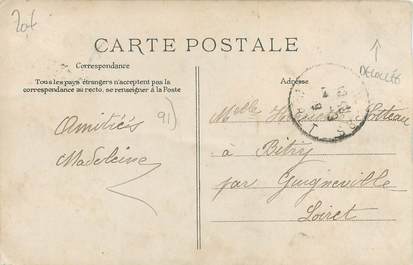 20f
CARTE POSTALE
DÉCOLLÉE
Correspondance
Adresse
Tous les pays étrangers n'acceptent pas la
correspondance au recto, se renseigner à la Poste
91)
Amitiés
Madeleine
Melle
à Bitry
par Guigneville
Loiret